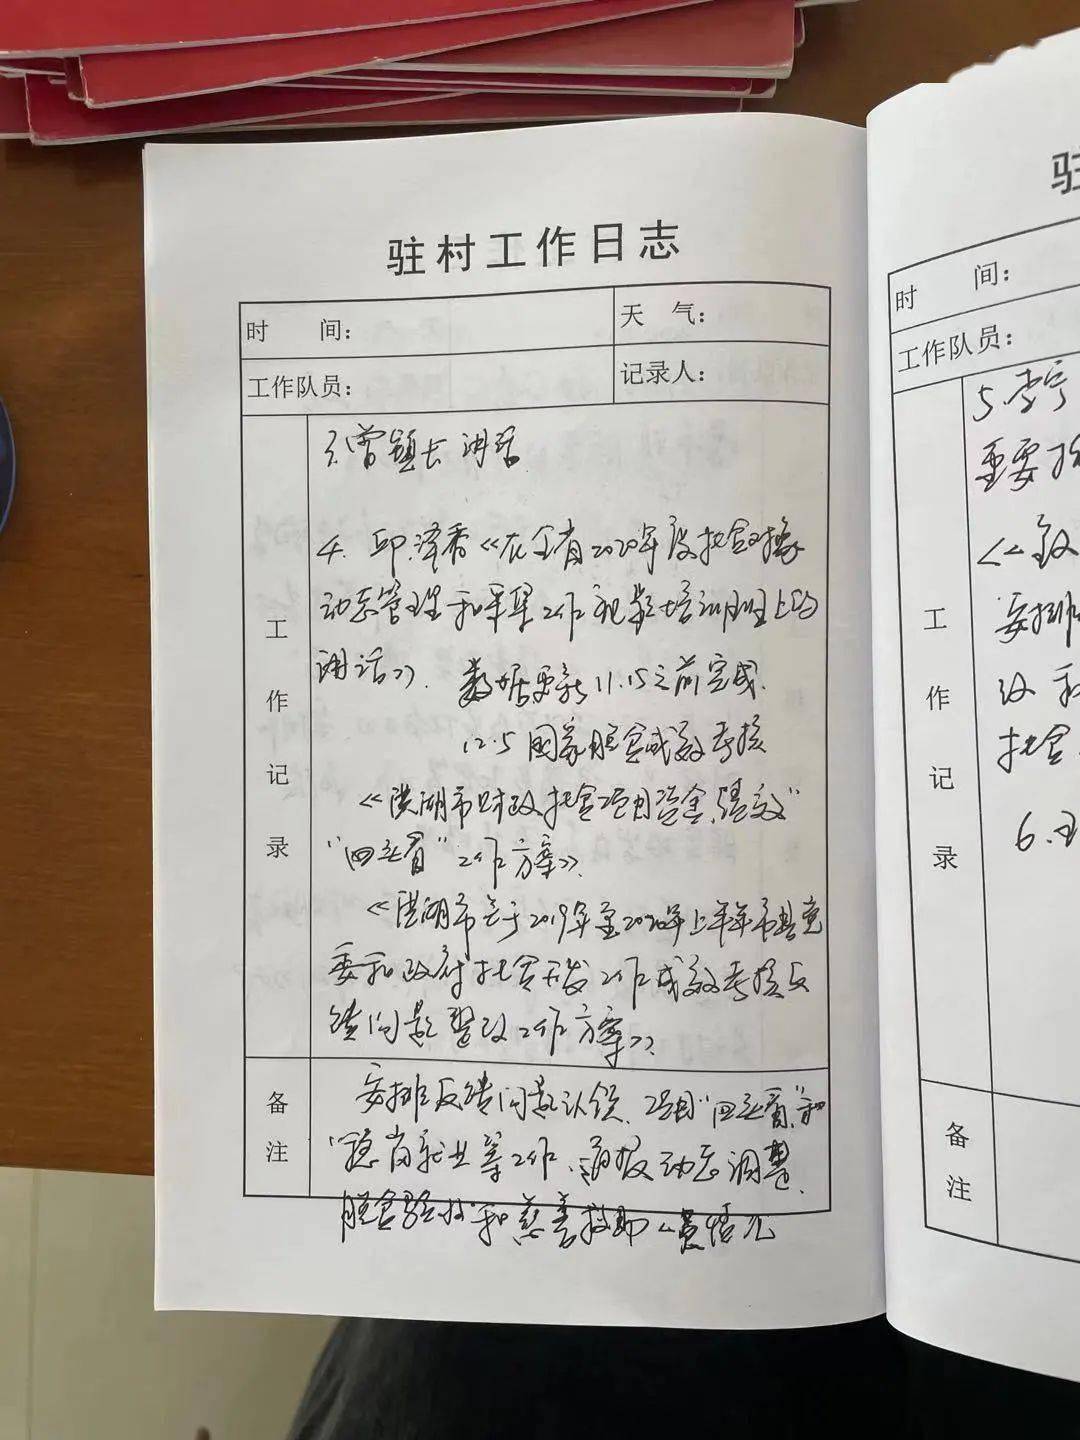 驻村工作日志
时 间：
天 气：
工作队员：
记录人：
工作记录
3.曾镇长讲话
4. 邱泽香《在全省2020年度扶贫对象
动态管理和采集工作视频培训班上的
讲话》. 数据更新11.15之前完成.
12.5国家脱贫成效考核
《洪湖市财政扶贫项目资金绩效"
"回头看"工作方案》.
《洪湖市关于2019年至2020年上半年市县党
委和政府扶贫开发工作成效考核反
馈问题整改工作方案》.
备注
安排反馈问题认领. 项目"回头看"和
稳岗就业等工作、通报动态调整.
脱贫验收和慈善救助人员情况
驻
时 间：
工作队员：
工作记录
5.李宁
重要
《
安排
改
扶贫
6.
备注